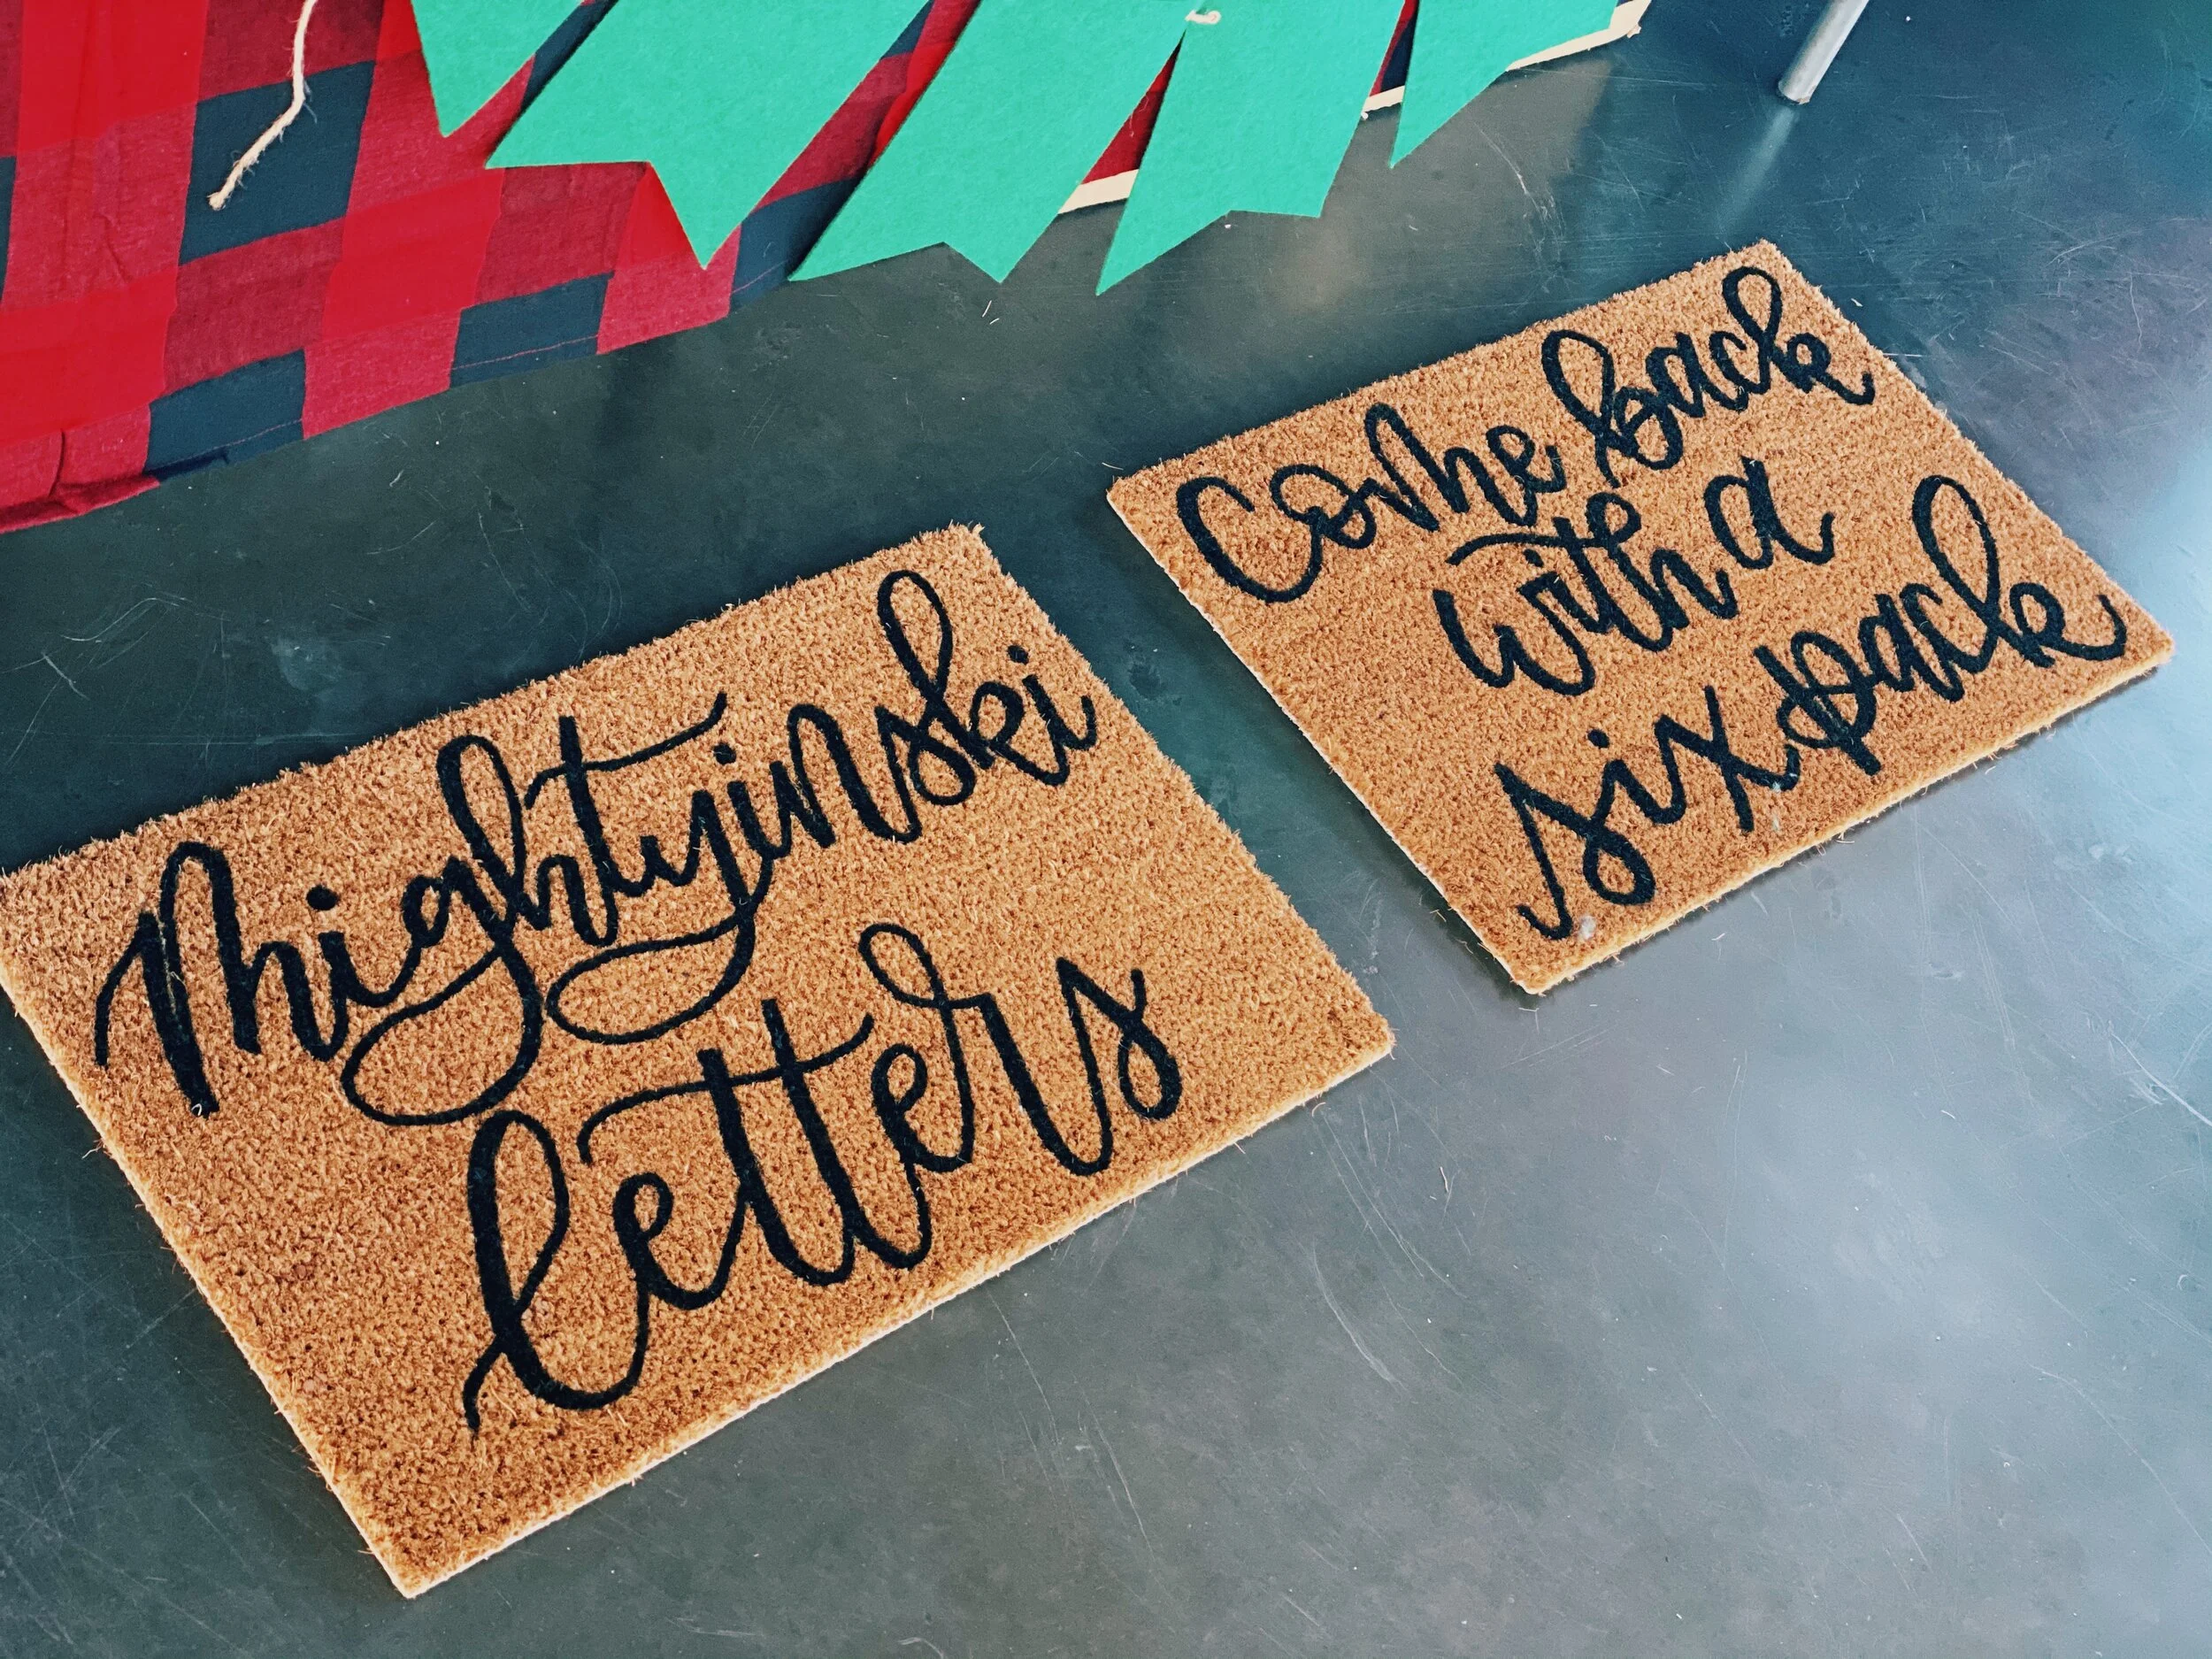 mightyinski
letters
come back
with a
six pack